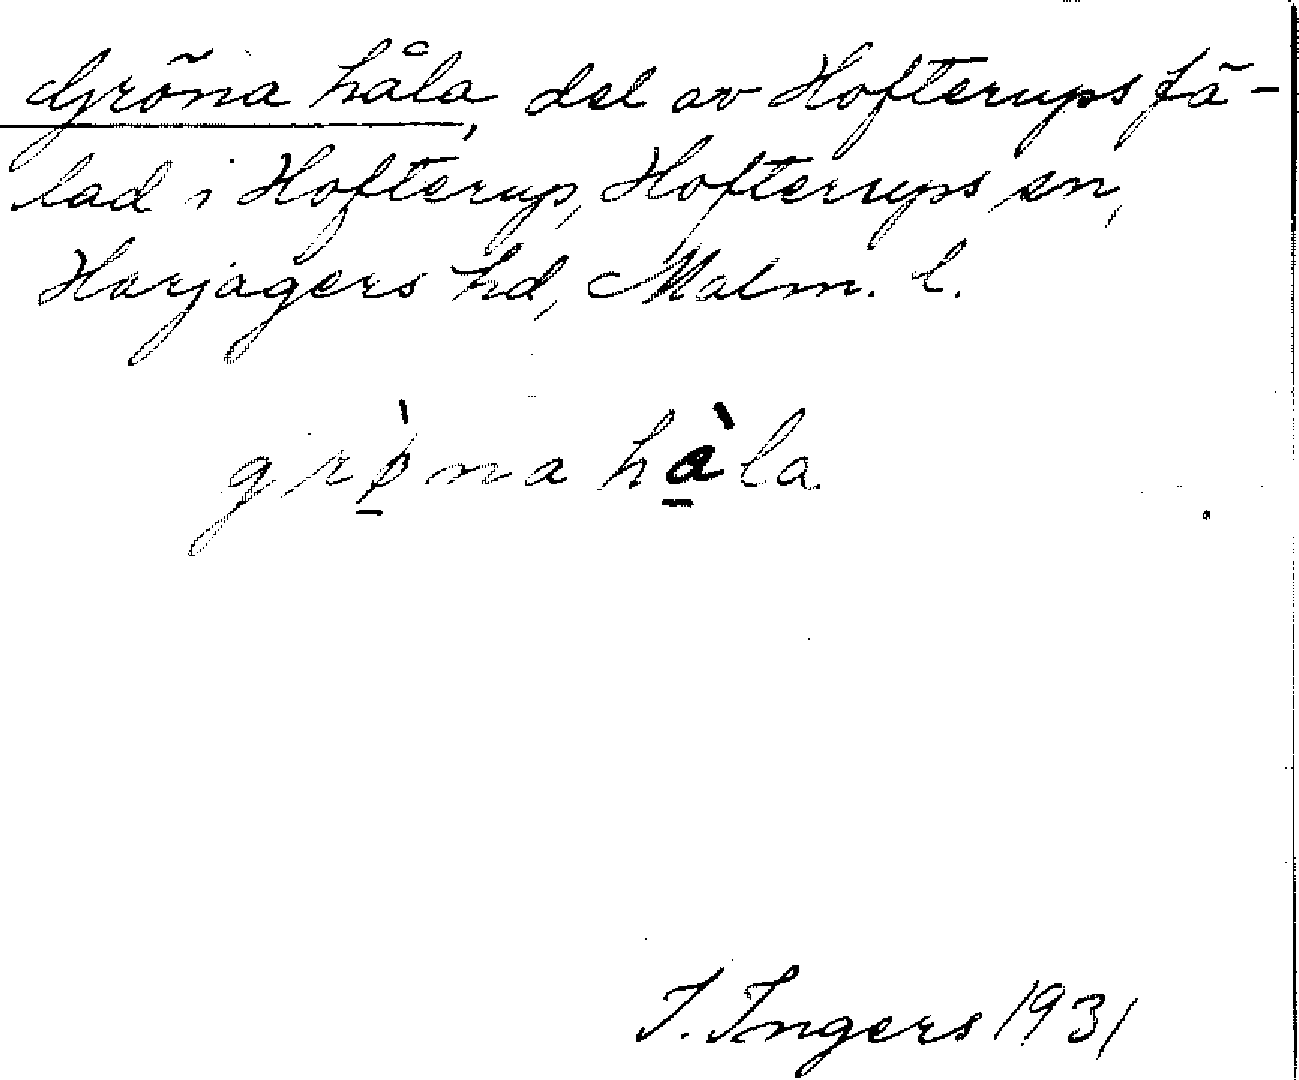 Gröna håla, del av Hofterups fä-
lad i Hofterup, Hofterups sn,
Harjagers hd, Malm. l.
grø̀na hàla.
I. Ingers 1931